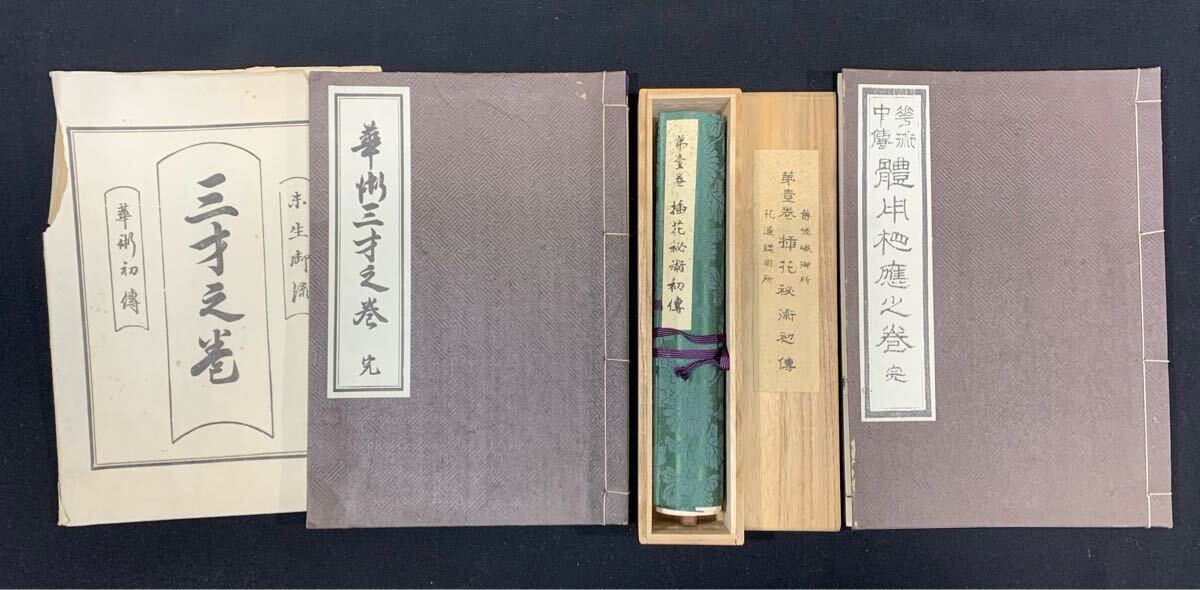 未生御流
三才之巻
華術初傳
華術三才之巻 完
第壹巻 插花祕術初傳
舊嵯峨御所
華道総司所
第壹巻 插花祕術初傳
華術
中傳
體用相應之巻 完